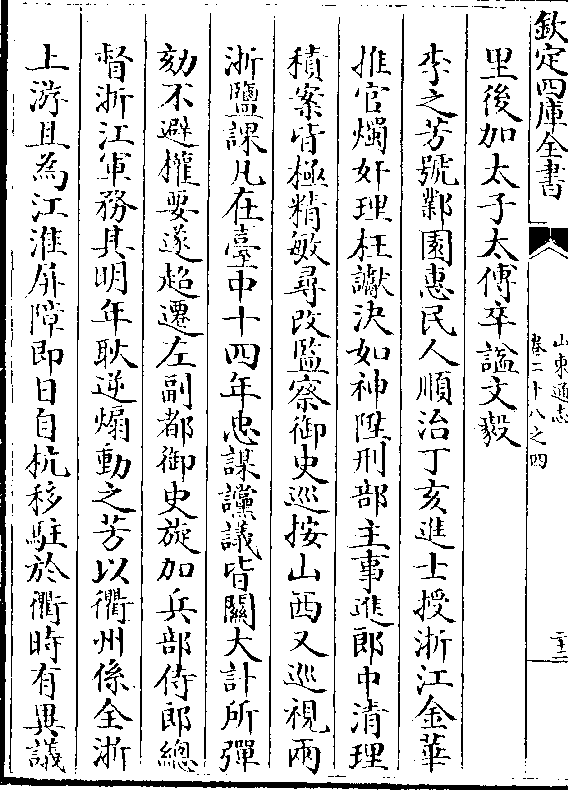 欽定四庫全書
山東通志
卷二十八之四
二十三
里後加太子太傅卒諡文毅
李之芳號鄴園惠民人順治丁亥進士授浙江金華
推官燭奸理枉讞決如神陞刑部主事進郎中清理
積案皆極精敏尋改監察御史巡按山西又巡視兩
浙鹽課凡在臺中十四年忠謀讜議皆關大計所彈
劾不避權要遂超遷左副都御史旋加兵部侍郎總
督浙江軍務其明年耿逆煽動之芳以衢州係全浙
上游且為江淮屏障即日自杭移駐於衢時有異議